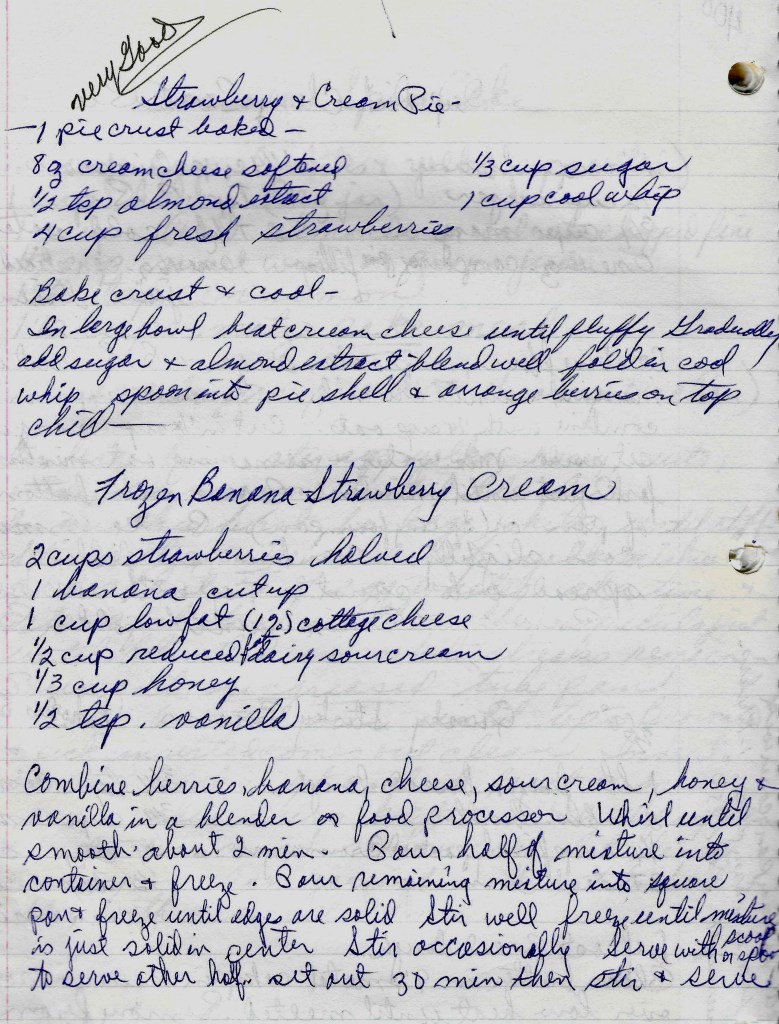 very Good
Strawberry + Cream Pie -
- 1 pie crust baked -
8 oz creamcheese softened 1/3 cup sugar
1/2 tsp almond extract 1 cup cool whip
4 cup fresh strawberries
Bake crust + cool -
In large bowl beat cream cheese until fluffy Gradually
add sugar + almond extract - blend well fold in cool
whip spoon into pie shell + arrange berries on top
chill —
Frozen Banana-Strawberry Cream
2 cups strawberries halved
1 banana cut up
1 cup lowfat (1%) cottage cheese
1/2 cup reduced fat dairy sour cream
1/3 cup honey
1/2 tsp. vanilla
Combine berries, banana, cheese, sour cream, honey +
vanilla in a blender or food processor Whirl until
smooth about 2 min. Pour half of mixture into
container + freeze. Pour remaining mixture into square
pan + freeze until edges are solid Stir well freeze until mixture
is just solid in center Stir occasionally Serve with scoop or spoon
to serve other half.. set out 30 min then stir + serve